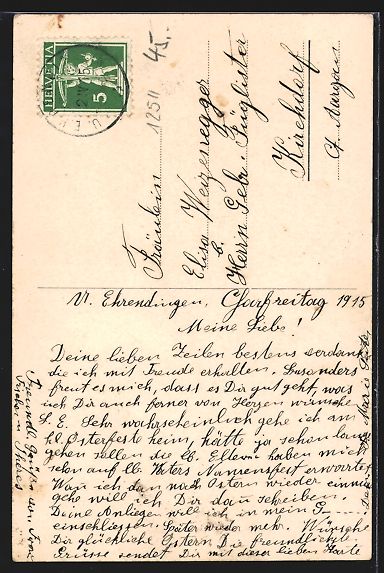 HELVETIA
5
12511
45.-
Fräulein
Elisa Weizenegger
b.
Herrn Gebr. Füglister
Kirchdorf
Ct. Aargau
U. Ehrendingen, Charfreitag 1915
Meine Liebe!
Deine lieben Zeilen bestens verdankt
die ich mit Freude erhalten. Besonders
freut es mich, dass es Dir gut geht, was
ich Dir auch ferner von Herzen wünsche
S. E. Sehr wahrscheinlich gehe ich am
hl. Osterfeste heim, hätte ja schon lange
gehen sollen die lb. Eltern haben mich
schon auf lb. Vaters Namensfest erwartet.
Wan ich dan nach Ostern wieder einmal
gehe will ich Dir dan schreiben.
Deine Anliegen will ich in mein G----
einschliessen. Später wieder mehr. Wünsche
Dir glückliche Ostern Die freundlichste
Grüsse sendet Dir mit dieser lieben Karte
Marie
Freundl. Grüsse an